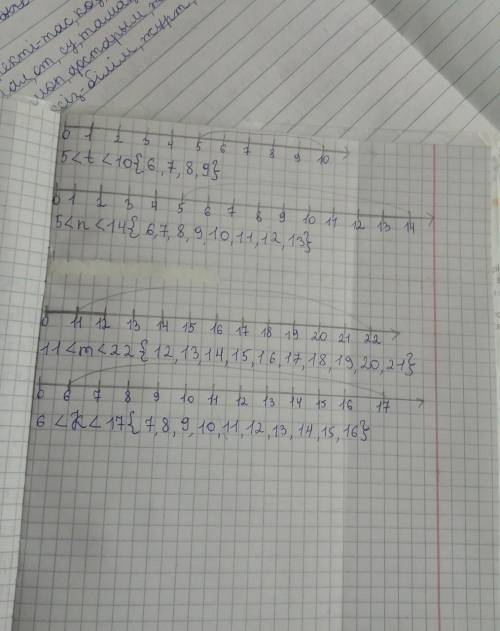 0 1 2 3 4 5 6 7 8 9 10
5<t<10{6,7,8,9}
0 1 2 3 4 5 6 7 8 9 10 11 12 13 14
5<n<14{6,7,8,9,10,11,12,13}
0 11 12 13 14 15 16 17 18 19 20 21 22
11<m<22{12,13,14,15,16,17,18,19,20,21}
0 6 7 8 9 10 11 12 13 14 15 16 17
6<K<17{7,8,9,10,11,12,13,14,15,16}